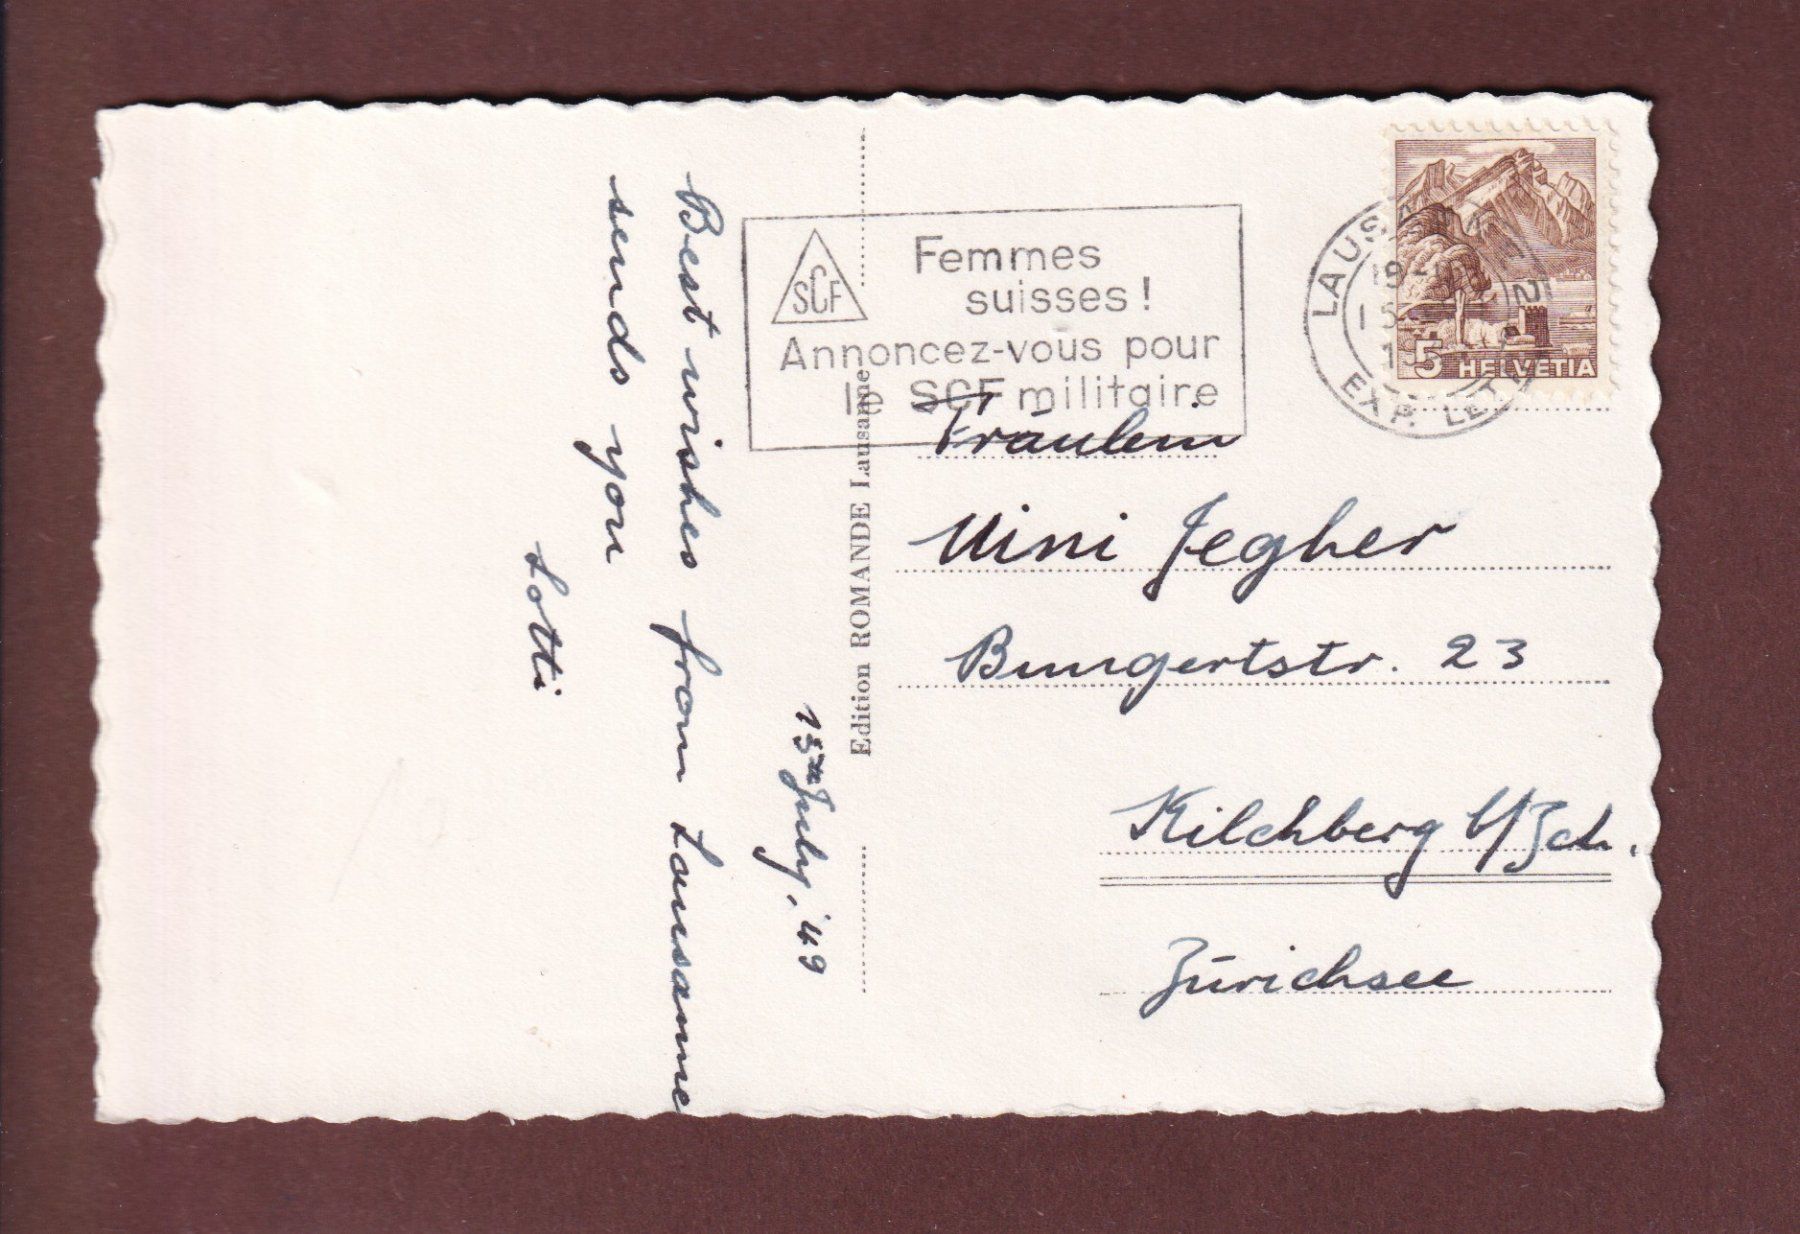 Best wishes from Lausanne
sends you
Lotti
13th July, '49
Edition ROMANDE Lausanne
SCF
Femmes
suisses !
Annoncez-vous pour
le SCF militaire
LAUSANNE 2
EXP. LETT
5 HELVETIA
Fräulein
Mini Jegher
Bungertstr. 23
Kilchberg b/Zch.
Zürichsee